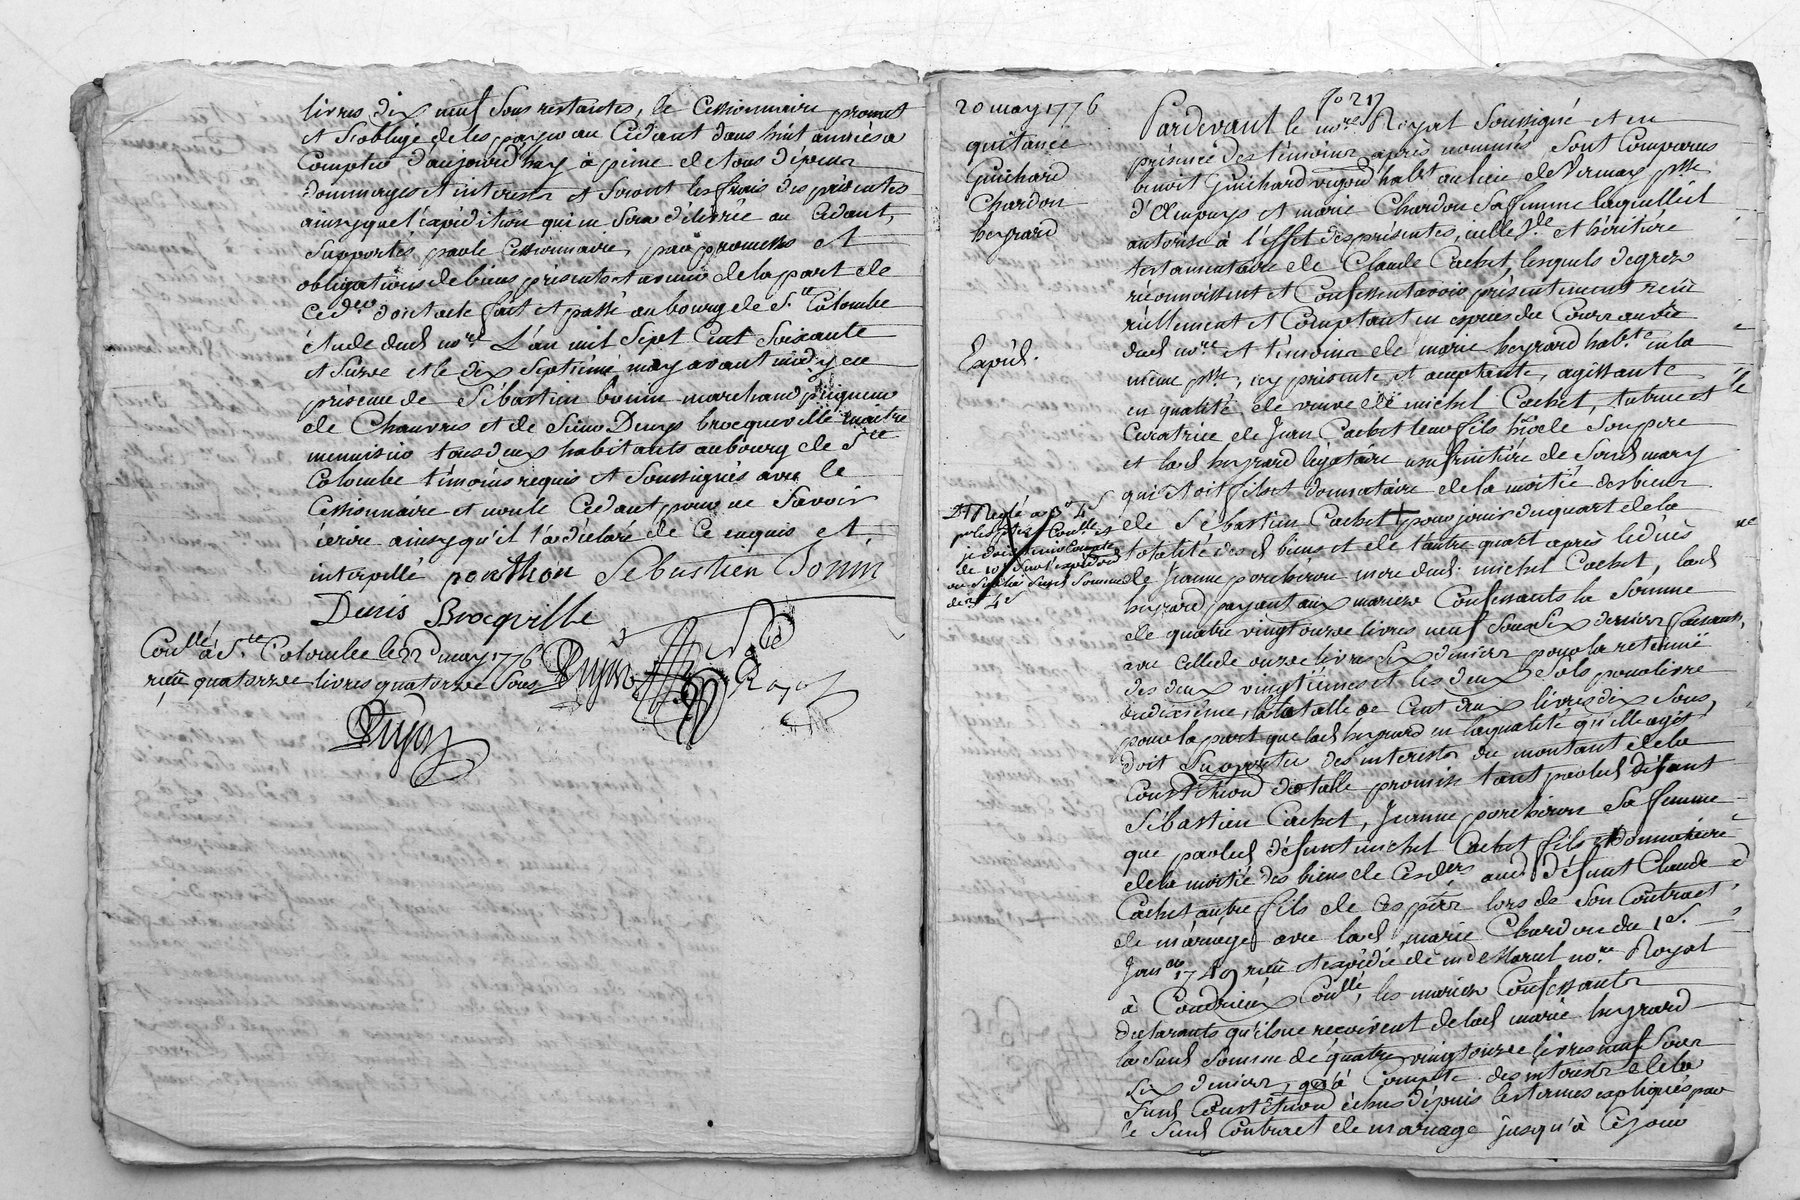 livres dix neuf sous restantes, le Cessionnaire promet
et s'oblige de les payer au Cedant dans huit années a
Compter d'aujourd'huy à peine de tous dépens
dommages et interests et seront les frais des presentes
ainsy que l'expedition qui en sera délivrée au Cedant,
supportés par le Cessionnaire, par promesses et
obligations de biens presents et avenir de la part de
Ced. dont acte fait et passé au bourg de Ste Colombe
étude dud nore L'an mil sept Cent soixante
et seize et le dix septième may avant midy en
présence de Sébastien bonin marchand
de Chanvres et de Denys brocqueville maitre
menuisier tous deux habitants au bourg de Ste
Colombe témoins requis et soussignés avec le
Cessionnaire et non le Cedant pour ne savoir
écrire ainsy qu'il l'a déclaré de ce enquis et
interpellé Sebastien Bonin
Denis Brocqville
Conllé à Ste Colombe le 22 may 1776
reçu quatorze livres quatorze sous
20 may 1776
quitance
Guichard
Chardon
heyrard
Expéd.
fo 217
Pardevant le nore Royal soussigné et en
présence des témoins après nommés sont Comparus
benoit Guichard vigon habt au lieu de Vernay psse
d'Ampuys et marie Chardon sa femme laquelle il
autorise à l'effet des presentes, icelle et héritière
testamentaire de Claude Cachet, lesquels de grez
réconnoissent et Confessent avoir présentement reçu
réellement et Comptant en espèces de Cours au vû
dud nore et témoins de marie heyrard habte en la
même psse, icy présente et acceptante, agissante
en qualité de veuve de michel Cachet, tutrice et
Curatrice de Jean Cachet leur fils hier de son pere
et lad heyrard légataire usufruitière de sond mary
qui étoit fils et donnataire de la moitié des biens
de Sébastien Cachet + pour jouir du quart de la
totalité desd biens et de l'autre quart après le décès
de Jeanne porcheron mere dud. michel Cachet, lad
heyrard payant aux mariez Confessants la somme
de quatre vingt onze livres neuf sous six deniers faisant,
avec celle de onze livres six deniers pour la retenüe
des deux vingtièmes et les deux sols pour livre
du dixième, la totalle de Cent deux livres dix sous,
pour la part que lad heyrard en la qualité qu'elle agit
doit supporter des interests du montant de la
Constitution dotalle promise tant par led défunt
Sébastien Cachet, Jeanne porcheron sa femme
que par led défunt michel Cachet fils et donnataire
de la moitié des biens de Cesders aud défunt Claude
Cachet autre fils de ces pers lors de son Contract
de mariage avec lad marie Chardon du 1er
Janer 1749 reçu et expédié de me Marel nore Royal
à Condrieux Conllé, les mariez Confessants
déclarants qu'ils ne reçoivent de lad marie heyrard
la susd somme de quatre vingt onze livres neuf sous
six deniers, qu'à Compte des interests de la
susd Constitution échus dépuis les termes expliqués par
le susd Contract de mariage jusqu'à Cejour